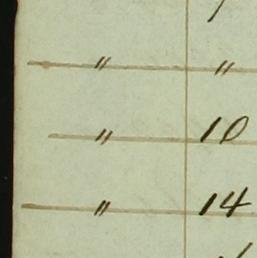 〃 〃
〃 10
〃 14